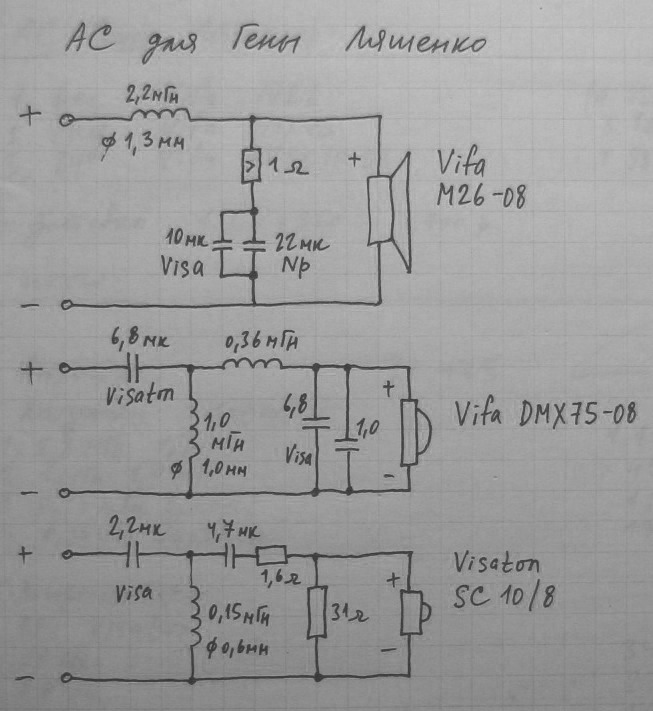 АС для Гены Ляшенко
2,2мГн
+
ϕ 1,3мм
1Ω
+
Vifa
M26-08
10мк
22мк
Visa
Np
−
6,8мк
0,36мГн
+
Visaton
+
6,8
1,0
Vifa DMX75-08
1,0
мГн
Visa
ϕ 1,0мм
−
−
2,2мк
4,7мк
+
Visa
1,6Ω
+
Visaton
SC 10/8
0,15мГн
31Ω
ϕ0,6мм
−
−